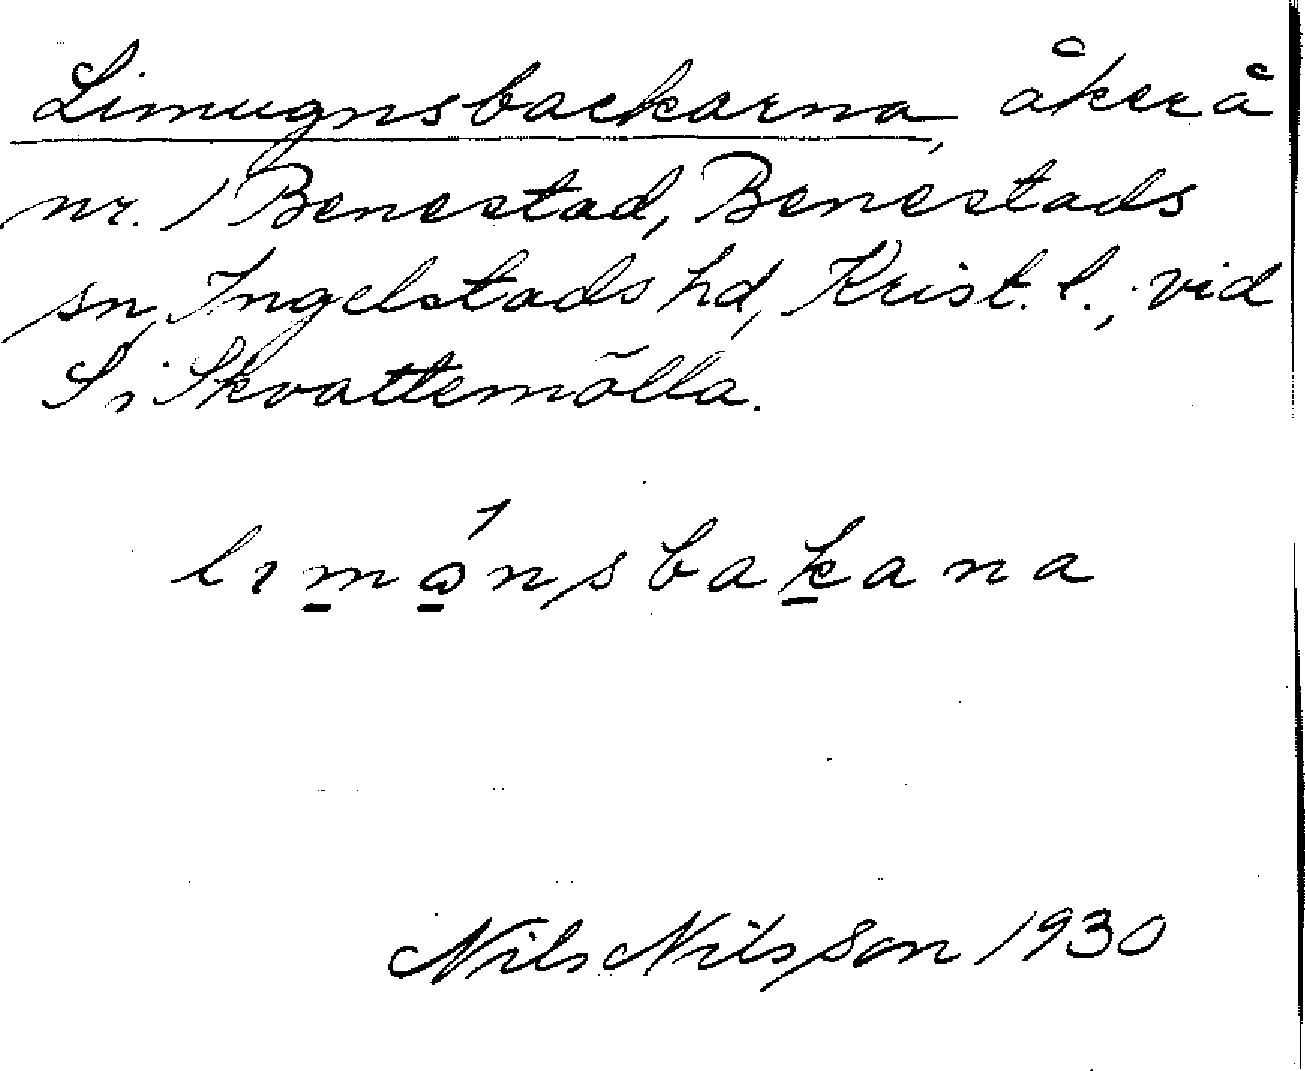 Limugnsbackarna, åker å
nr. 1 Benestad, Benestads
sn, Ingelstads hd, Krist. l., vid
Skvattemölla.
limǫ́nsbakana
Nils Nilsson 1930